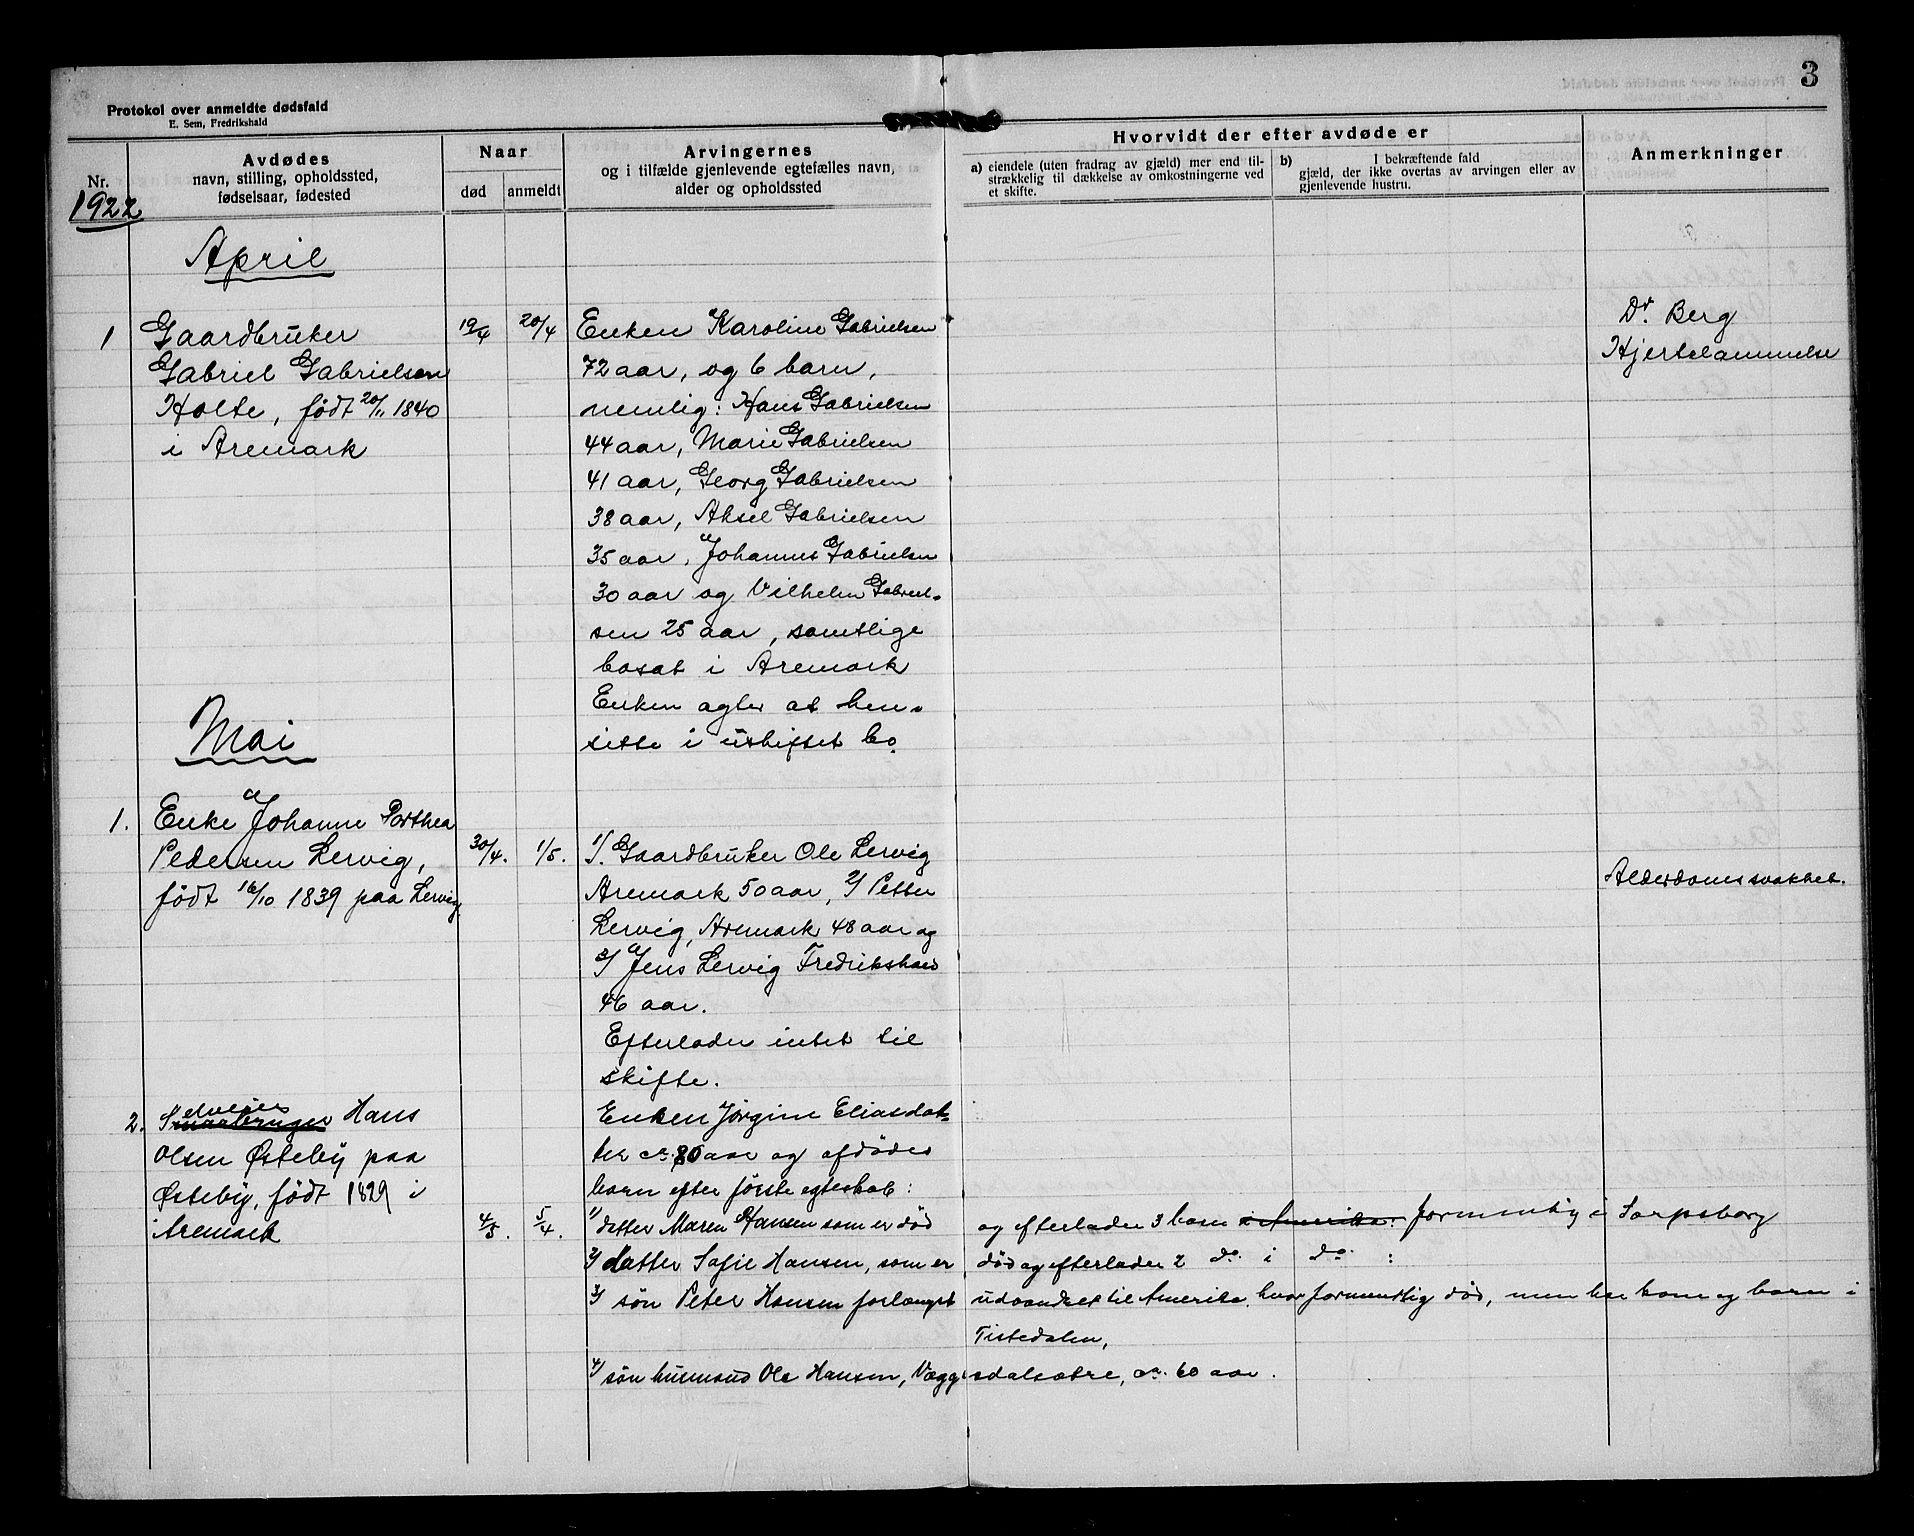 3
Protokol over anmeldte dødsfald
E. Sem, Fredrikshald
Nr.
Avdødes
navn, stilling, opholdssted,
fødselsaar, fødested
Naar
død
anmeldt
Arvingernes
og i tilfælde gjenlevende egtefælles navn,
alder og opholdssted
Hvorvidt der efter avdøde er
a) eiendele (uten fradrag av gjæld) mer end til-
strækkelig til dækkelse av omkostningerne ved
et skifte.
b) I bekræftende fald
gjæld, der ikke overtas av arvingen eller av
gjenlevende hustru.
Anmerkninger
1922
April
1 Gaardbruker
Gabriel Gabrielsen
Holte, født 20/11 1840
i Aremark
19/4
20/4
Enken Karoline Gabrielsen
72 aar, og 6 barn,
nemlig: Hans Gabrielsen
44 aar, Marie Gabrielsen
41 aar, Georg Gabrielsen
38 aar, Aksel Gabrielsen
35 aar, Johannes Gabrielsen
30 aar og Vilhelm Gabriel-
sen 25 aar, samtlige
bosat i Aremark
Enken agter at hen-
sitte i uskiftet bo.
Dr. Berg
Hjertelammelse
Mai
1. Enke Johanne Dorthea
Pedersen Lervig,
født 16/10 1839 paa Lervig
30/4.
1/5.
1/. Gaardbruker Ole Lervig
Aremark 50 aar, 2/ Petter
Lervig, Aremark 48 aar og
3/ Jens Lervig Fredrikshald
46 aar.
Efterlader intet til
skifte.
Alderdomssvakhet.
2. Selveier Hans
Olsen Østeby paa
Østeby, født 1829 i
Aremark
4/5.
5/4.
Enken Jørgine Eliasdat-
ter ca. 80 aar og afdødes
barn efter første egteskab:
1/ datter Maren Hansen som er død og efterlader 3 barn i Amerika. formentlig i Sarpsborg
2/ datter Sofie Hansen, som er død og efterlader 2 do. i do. :
3/ søn Peter Hansen forlængst udvandret til Amerika, hvor formentlig død, men har kone og barn i
Tistedalen,
4/ søn husmand Ole Hansen, Væggesdalsætre, ca. 60 aar.